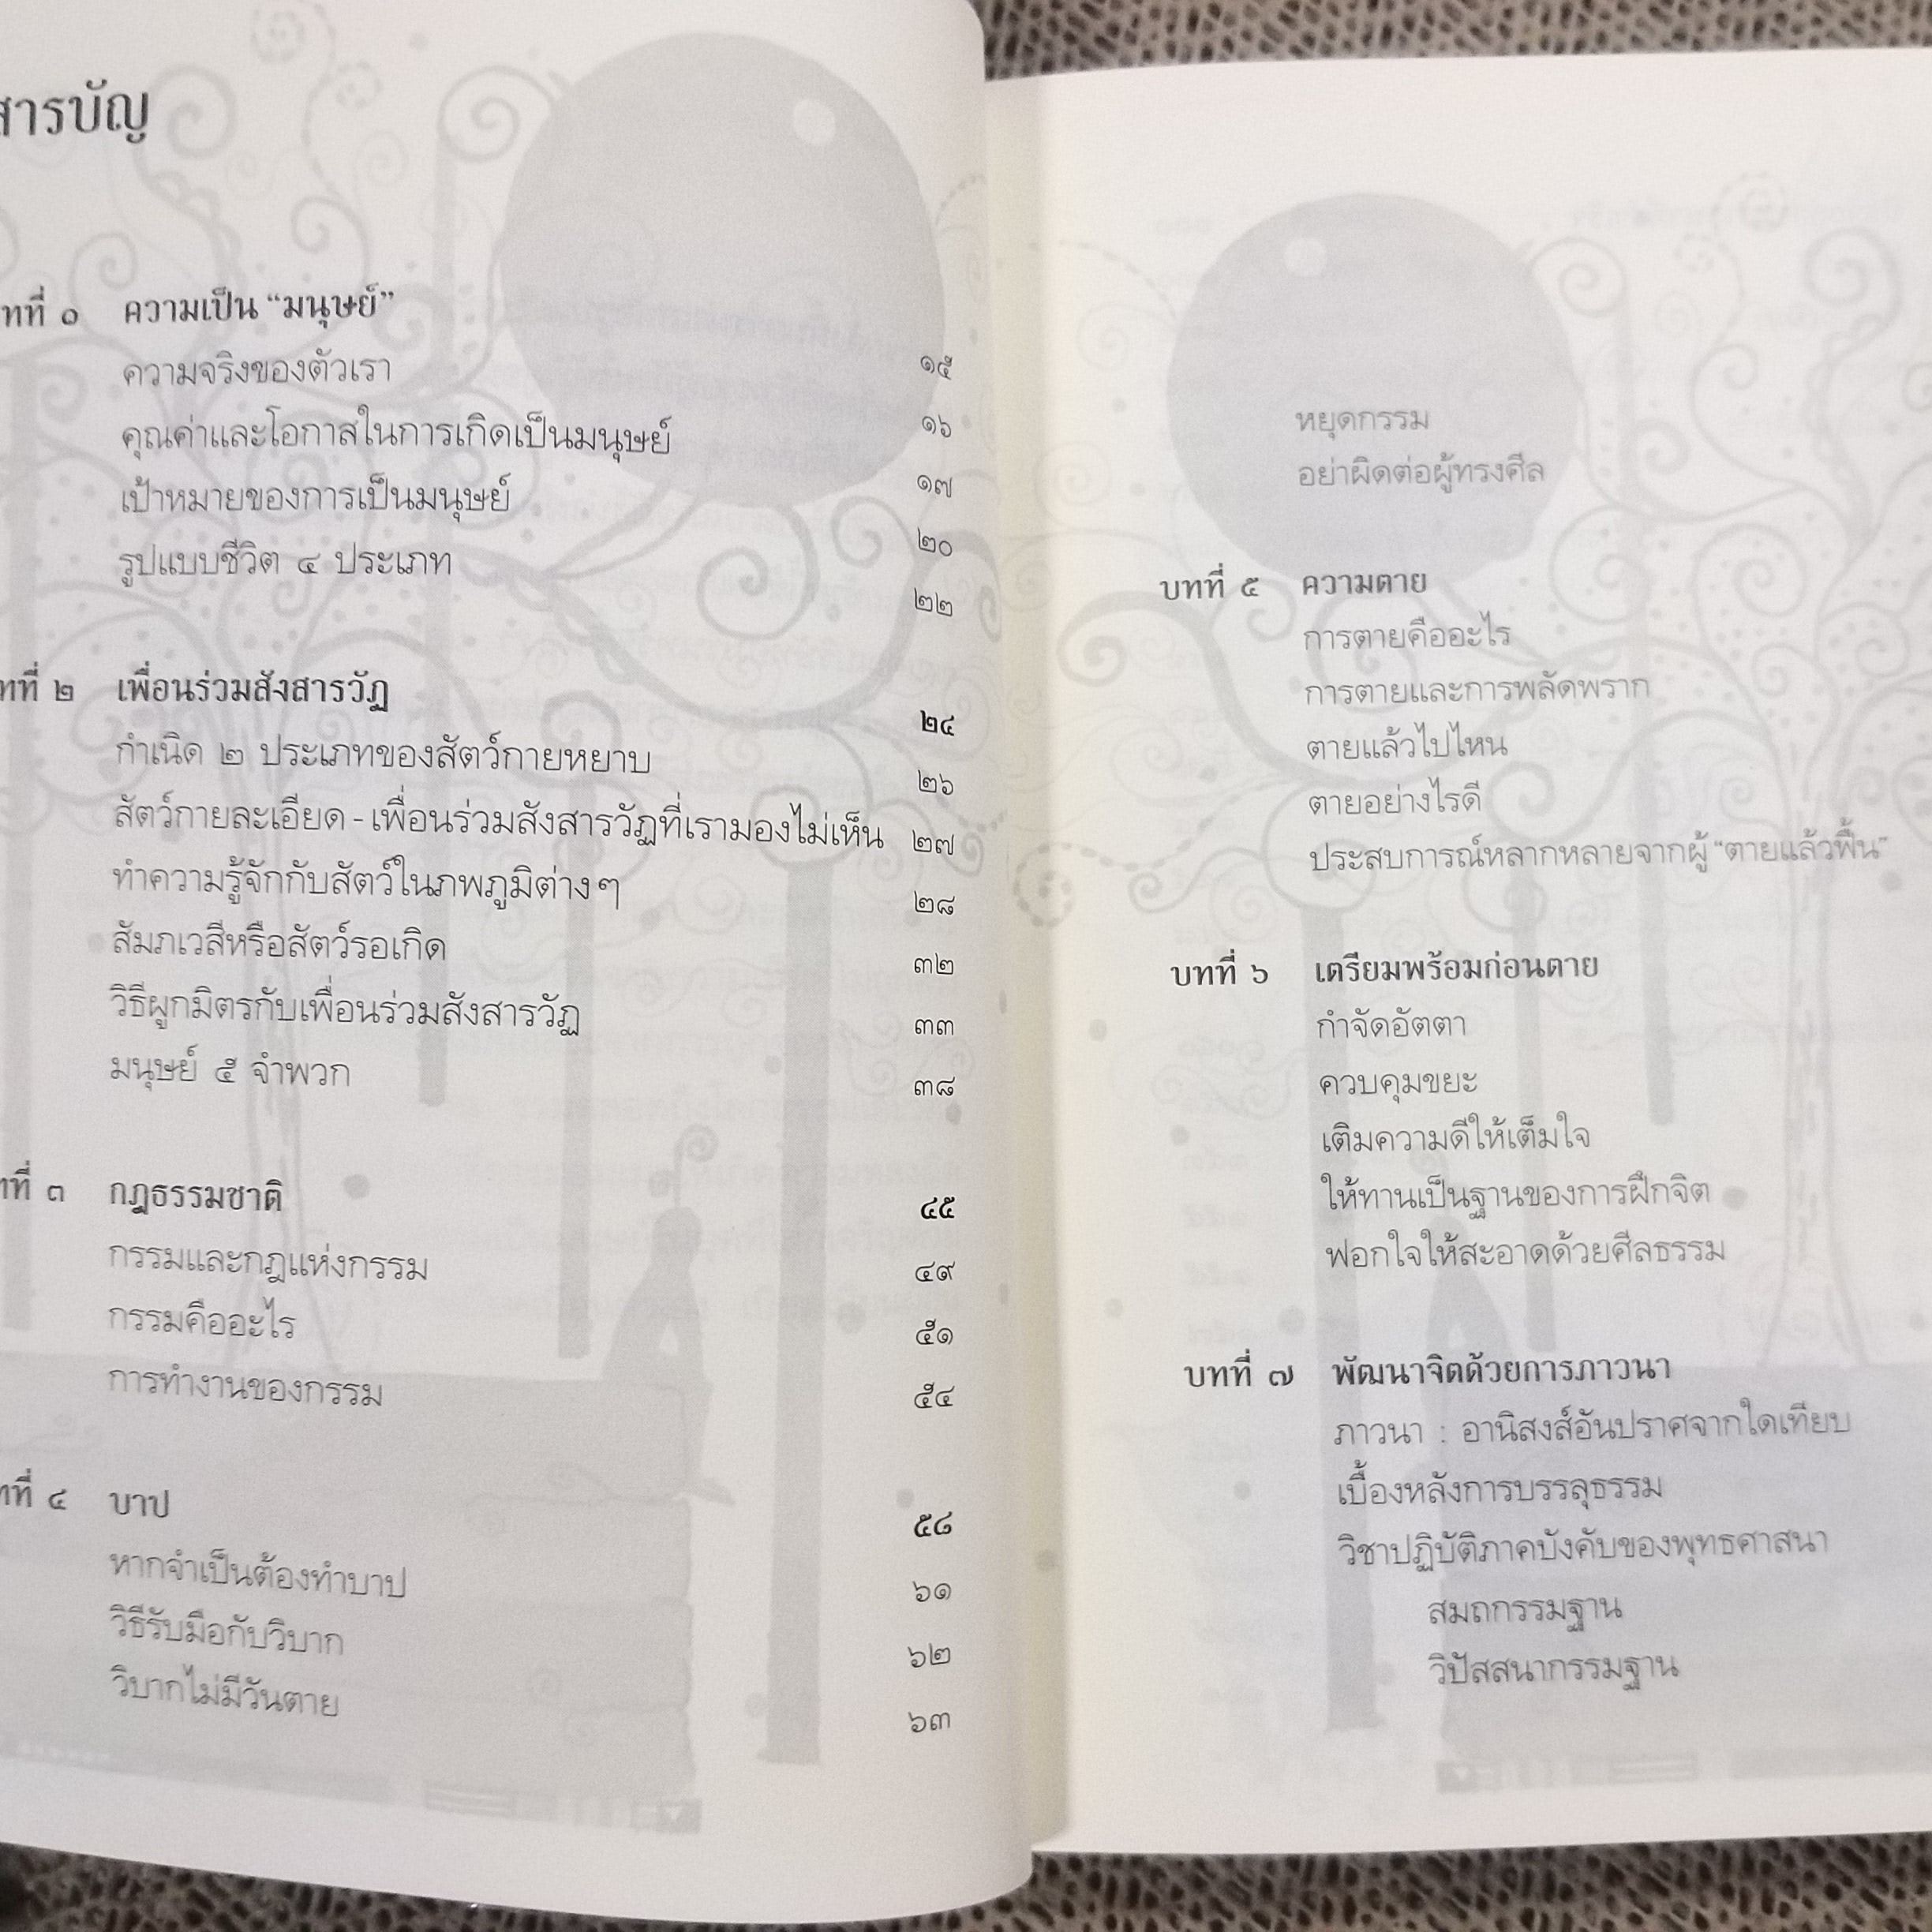 สารบัญ
บทที่ ๑ ความเป็น “มนุษย์” ๑๕
ความจริงของตัวเรา ๑๖
คุณค่าและโอกาสในการเกิดเป็นมนุษย์ ๑๗
เป้าหมายของการเป็นมนุษย์ ๒๐
รูปแบบชีวิต ๔ ประเภท ๒๒
บทที่ ๒ เพื่อนร่วมสังสารวัฏ ๒๔
กำเนิด ๒ ประเภทของสัตว์กายหยาบ ๒๖
สัตว์กายละเอียด - เพื่อนร่วมสังสารวัฏที่เรามองไม่เห็น ๒๗
ทำความรู้จักกับสัตว์ในภพภูมิต่าง ๆ ๒๘
สัมภเวสีหรือสัตว์รอเกิด ๓๒
วิธีผูกมิตรกับเพื่อนร่วมสังสารวัฏ ๓๓
มนุษย์ ๕ จำพวก ๓๘
บทที่ ๓ กฎธรรมชาติ ๔๕
กรรมและกฎแห่งกรรม ๔๙
กรรมคืออะไร ๕๑
การทำงานของกรรม ๕๔
บทที่ ๔ บาป ๕๘
หากจำเป็นต้องทำบาป ๖๑
วิธีรับมือกับวิบาก ๖๒
วิบากไม่มีวันตาย ๖๓
หยุดกรรม
อย่าผิดต่อผู้ทรงศีล
บทที่ ๕ ความตาย
การตายคืออะไร
การตายและการพลัดพราก
ตายแล้วไปไหน
ตายอย่างไรดี
ประสบการณ์หลากหลายจากผู้ “ตายแล้วฟื้น”
บทที่ ๖ เตรียมพร้อมก่อนตาย
กำจัดอัตตา
ควบคุมขยะ
เติมความดีให้เต็มใจ
ให้ทานเป็นฐานของการฝึกจิต
ฟอกใจให้สะอาดด้วยศีลธรรม
บทที่ ๗ พัฒนาจิตด้วยการภาวนา
ภาวนา : อานิสงส์อันปราศจากใดเทียบ
เบื้องหลังการบรรลุธรรม
วิชาปฏิบัติภาคบังคับของพุทธศาสนา
สมถกรรมฐาน
วิปัสสนากรรมฐาน